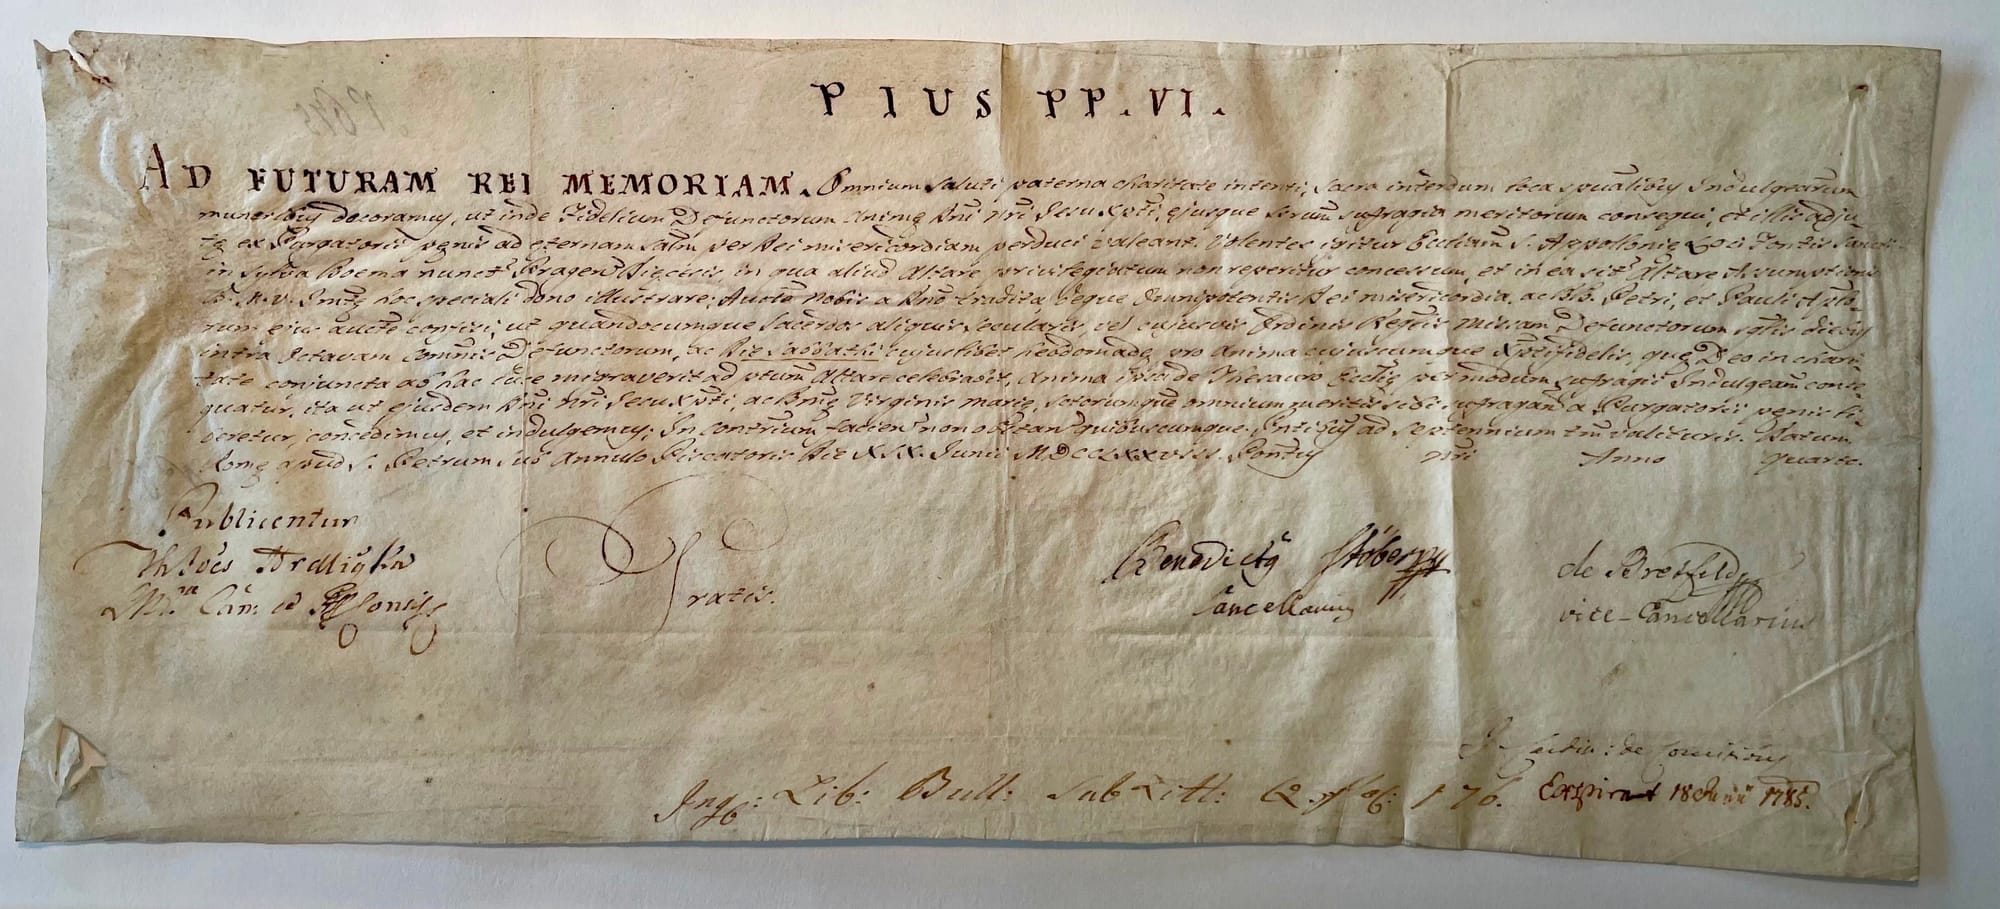 PIUS PP. VI.
AD FUTURAM REI MEMORIAM. Omnium saluti paterna charitate intenti, sacra interdum loca spualibus Indulgearum
muneribus decoramus, ut inde Fidelium Defunctorum animę Dni nri Jesu Xpti, ejusque Sctorum suffragia meritorum consequi, et illis adju-
tę ex Purgatorii pęnis ad eternam salutm per Dei misericordiam perduci valeant. Volentes igitur Eccliam S. Appollonię Loci Fontis Sancti
in Sylva Boema nunct Pragen Diecesis, in qua aliud Altare privilegiatum non reperitur concessum, et in ea sit Altare Assumptionis
B. M. V. hoc speciali dono illustrare; Aucte nobis a Dno tradita, deque Omnipotentis Dei misericordia, ac BB. Petri, et Pauli Aplo-
rum ejus aucte confisi, ut quandocumque Sacerdos aliquis secularis, vel cujusvis Ordinis Regris Missam Defunctorum sglis diebus
intra Octavam Commis Defunctorum, ac Die Sabbathi cujuslibet hebdomadę pro anima cujuscumque Xptifidelis, quę Deo in chari-
tate conjuncta ab hac luce migraverit ad ptum Altare celebrabit, anima ipsa de Thesauro Ecclię per modum suffragii Indulgeam conse-
quatur, ita ut ejusdem Dni nri Jesu Xpti, ac Bmę Virginis Marię, Sctorumque omnium meritis sibi suffragan a Purgatorii pęnis li-
beretur, concedimus, et indulgemus; In contrium facien non obstan quibuscumque. Pntibus ad septennium tm valituris. Datum
Romę apud S. Petrum sub Annulo Piscatoris Die XIX. Junii MDCCLXXVIII. Pontus nri Anno Quarto.
Publicentur
Gratis.
Benedictus
Cancellarius
de Bretfeld
vice-Cancellarius
Ing: Lib: Bull: sub Litt: Q fol: 176.
Expirat 18 Junii 1785.